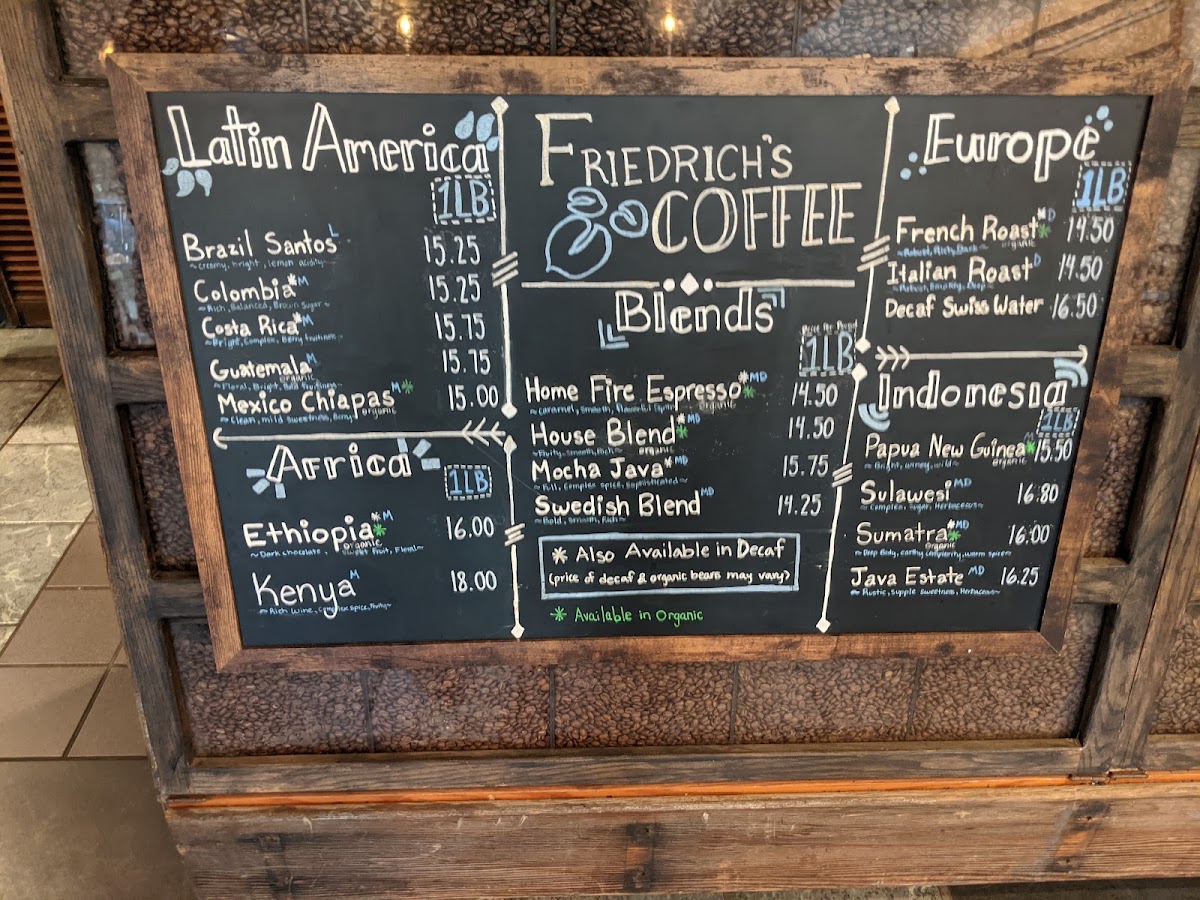 Latin America
1LB
Brazil Santos L 15.25
~creamy, bright, lemon acidity~
Colombia *M 15.25
~Rich, Balanced, Brown Sugar~
Costa Rica *M 15.75
~Bright, Complex, Berry
Guatemala M 15.75
organic
~Floral, Bright, Bold fruitiness~
Mexico Chiapas M* 15.00
organic
~Clean, mild sweetness,
Africa
1LB
Ethiopia *M* 16.00
organic
~Dark chocolate, Sweet Fruit, Floral~
Kenya M 18.00
~Rich Wine, Complex Spice, Fruity~
FRIEDRICH'S
COFFEE
Blends
Price Per Pound
1LB
Home Fire Espresso *MD* 14.50
organic
~Caramel, Smooth, Flavorful
House Blend *MD* 14.50
organic
~Fruity, Smooth, Rich~
Mocha Java *MD 15.75
~Full, Complex spice, Sophisticated~
Swedish Blend MD 14.25
~Bold, Smooth, Rich~
* Also Available in Decaf
(price of decaf & organic beans may vary)
* Available in Organic
Europe
1LB
French Roast *D* 14.50
organic
~Robust, Rich, Dark~
Italian Roast D 14.50
~Robust, Smokey, Deep~
Decaf Swiss Water 16.50
Indonesia
1LB
Papua New Guinea M* 15.50
organic
~Bright, winey, wild~
Sulawesi MD 16.80
~Complex, Sugar, Herbaceous~
Sumatra *MD* 16.00
organic
~Deep Body, earthy complexity, warm spice~
Java Estate MD 16.25
~Rustic, supple sweetness, Herbaceous~